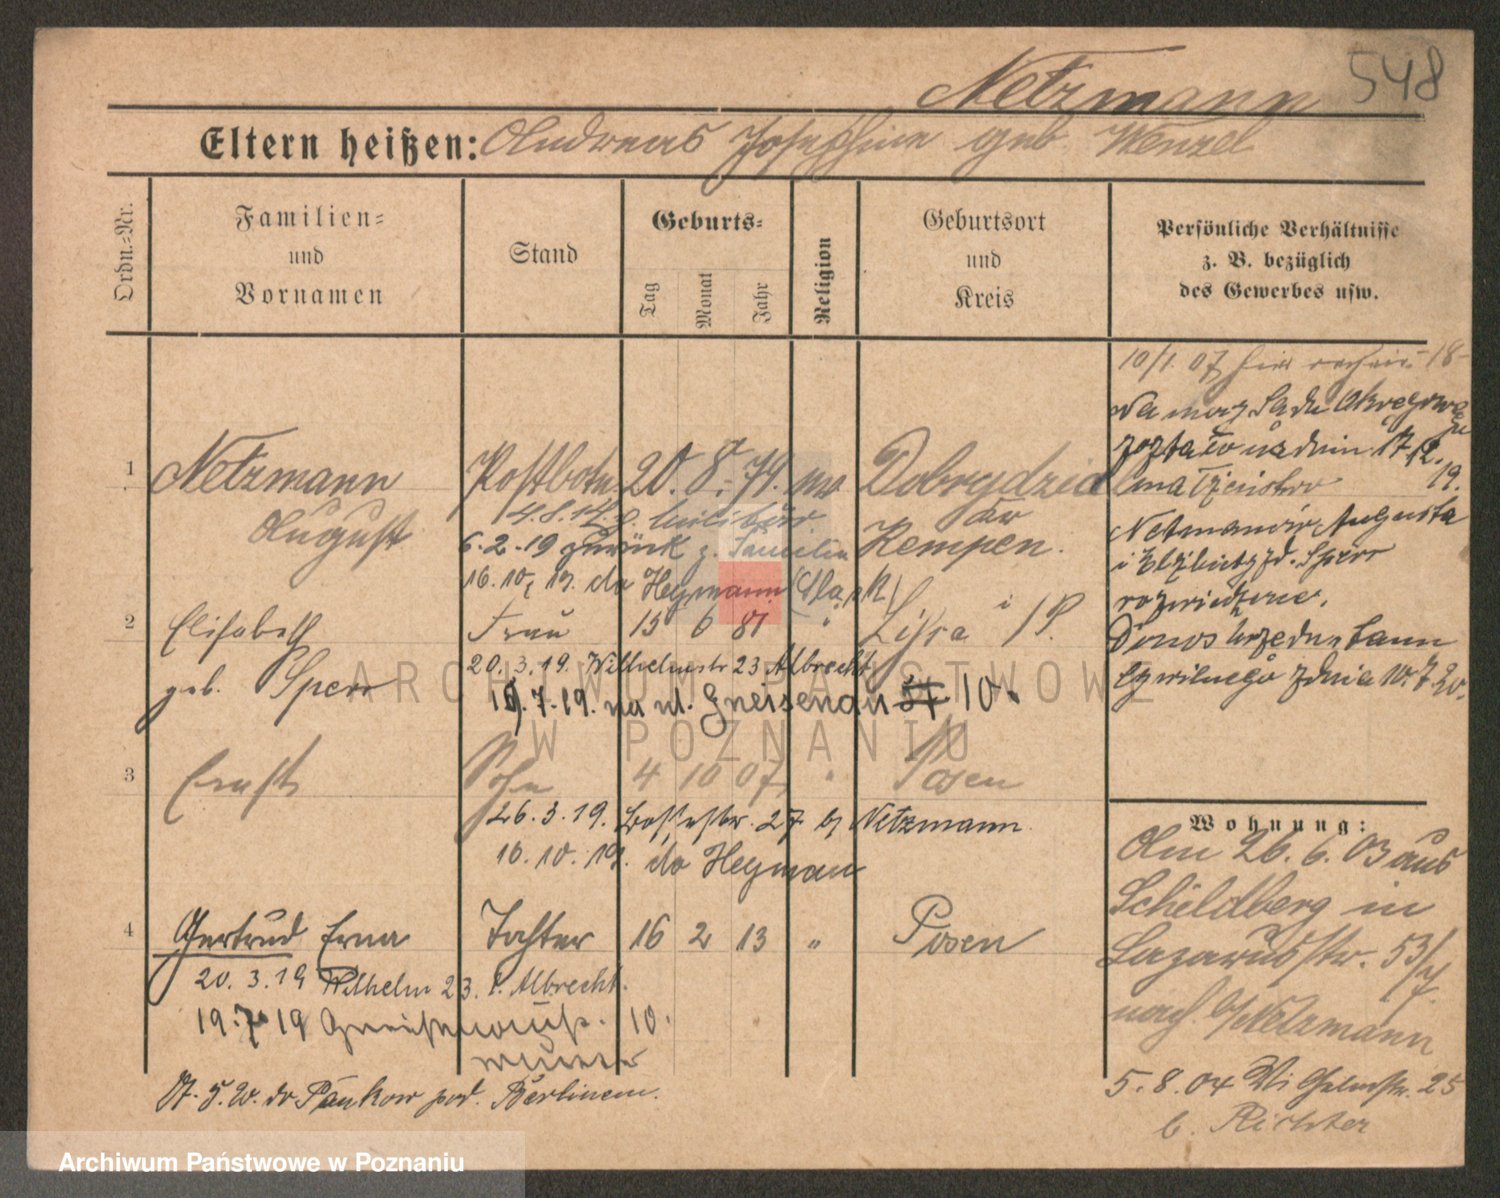 Netzmann 548
Eltern heißen: Andreas Josephine geb. Wenzel
Ordn.-Nr.
Familien-
und
Vornamen
Stand
Geburts-
Tag
Monat
Jahr
Religion
Geburtsort
und
Kreis
Persönliche Verhältnisse
z. B. bezüglich
des Gewerbes usw.
10/1. 07
Na mocy Sądu Okręgowego
został w dniu 17/12. 19.
małżeństwo
Netzmanów Augusta
i Elżbiety zd. Sperr
rozwiedzione.
Donos Urzędu Stanu
Cywilnego z dnia 10.7.20.
1 Netzmann Postbote 20. 8. 74.
August
4.8.14. z. Militär
Kempen.
6.2.19 zurück z. Familie
16.10.19. do Heymann
2 Elisabeth Frau 15 6 81 " Lissa i/P.
geb. Sperr
20.3.19. Wilhelmstr 23 Albrecht
19.7.19. na ul. Gneisenau 10.
3 Ernst Sohn 4 10 07 " Posen
26.3.19. 27 b/ Netzmann
16.10.19. do Heyman
4 Gertrud Erna Tochter 16 2 13 " Posen
20.3.19 Wilhelm 23. b. Albrecht.
19.7.19 Gneisenaustr. 10.
5.20. do Pankow pod. Berlinem.
Wohnung:
Am 26.6.03 aus
Schildberg in
Lazarusstr. 53/
nach b/Netzmann
5.8.04 Wilhelmstr. 25
b. Richter
ARCHIWUM PAŃSTWOWE
W POZNANIU
Archiwum Państwowe w Poznaniu